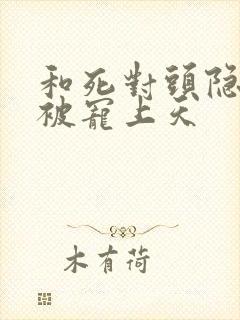 和死對頭隐
被寵上天
木有荷